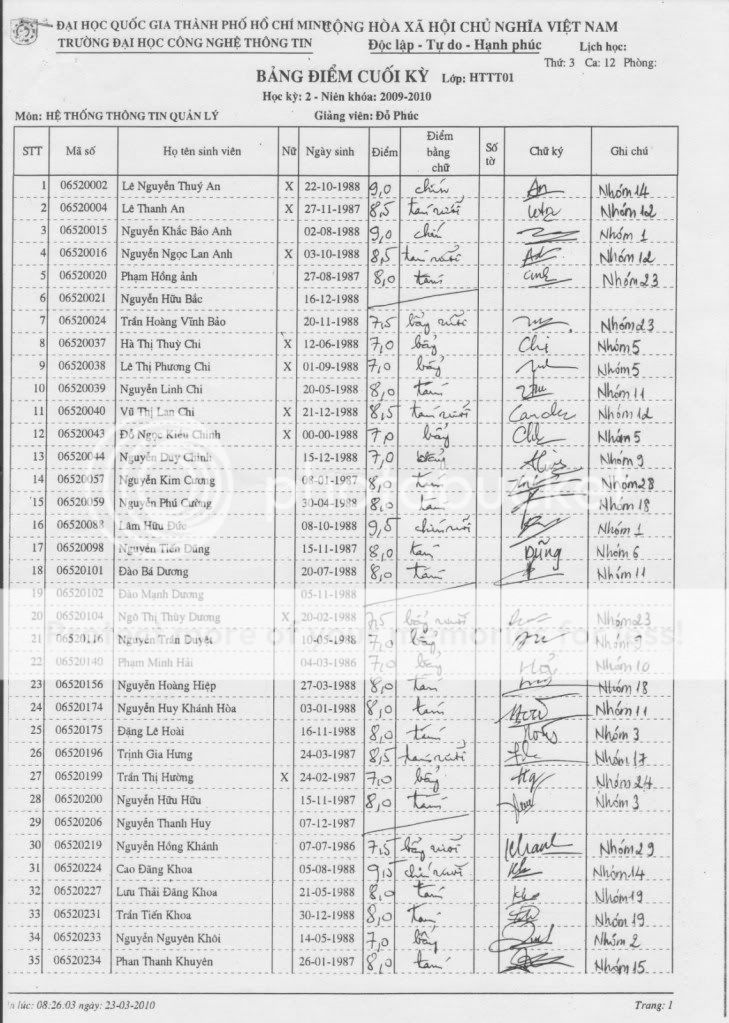 ĐẠI HỌC QUỐC GIA THÀNH PHỐ HỒ CHÍ MINH CỘNG HÒA XÃ HỘI CHỦ NGHĨA VIỆT NAM
TRƯỜNG ĐẠI HỌC CÔNG NGHỆ THÔNG TIN Độc lập - Tự do - Hạnh phúc Lịch học:
Thứ: 3 Ca: 12 Phòng:
BẢNG ĐIỂM CUỐI KỲ Lớp: HTTT01
Học kỳ: 2 - Niên khóa: 2009-2010
Môn: HỆ THỐNG THÔNG TIN QUẢN LÝ Giảng viên: Đỗ Phúc
STT Mã số Họ tên sinh viên Nữ Ngày sinh Điểm Điểm bằng chữ Số tờ Chữ ký Ghi chú
1 06520002 Lê Nguyễn Thuý An X 22-10-1988 9,0 chín An Nhóm 14
2 06520004 Lê Thanh An X 27-11-1987 8,5 tám rưỡi Nhóm 12
3 06520015 Nguyễn Khắc Bảo Anh 02-08-1988 9,0 chín Nhóm 1
4 06520016 Nguyễn Ngọc Lan Anh X 03-10-1988 8,5 tám rưỡi Nhóm 12
5 06520020 Phạm Hồng ảnh 27-08-1987 8,0 tám Nhóm 23
6 06520021 Nguyễn Hữu Bắc 16-12-1988
7 06520024 Trần Hoàng Vĩnh Bảo 20-11-1988 7,5 bẩy rưỡi Nhóm 23
8 06520037 Hà Thị Thuỳ Chi X 12-06-1988 7,0 bẩy Chi Nhóm 5
9 06520038 Lê Thị Phương Chi X 01-09-1988 7,0 bẩy Nhóm 5
10 06520039 Nguyễn Linh Chi 20-05-1988 8,0 tám Nhóm 11
11 06520040 Vũ Thị Lan Chi X 21-12-1988 8,5 tám rưỡi Nhóm 12
12 06520043 Đỗ Ngọc Kiều Chinh X 00-00-1988 7,0 bẩy Nhóm 5
13 06520044 Nguyễn Duy Chinh 15-12-1988 7,0 bẩy Nhóm 9
14 06520057 Nguyễn Kim Cương 08-01-1987 8,0 tám Nhóm 28
15 06520059 Nguyễn Phú Cường 30-04-1988 8,0 tám Nhóm 18
16 06520088 Lâm Hữu Đức 08-10-1988 9,5 chín rưỡi Nhóm 1
17 06520098 Nguyễn Tiến Dũng 15-11-1987 8,0 tám Dũng Nhóm 6
18 06520101 Đào Bá Dương 20-07-1988 8,0 tám Nhóm 11
19 06520102 Đào Mạnh Dương 05-11-1988
20 06520104 Ngô Thị Thùy Dương X 20-02-1988 7,5 bẩy rưỡi Nhóm 23
21 06520116 Nguyễn Trần Duyệt 10-05-1988 7,0 bẩy Nhóm 9
22 06520140 Phạm Minh Hải 04-03-1986 7,0 bẩy Nhóm 10
23 06520156 Nguyễn Hoàng Hiệp 27-03-1988 8,0 tám Nhóm 18
24 06520174 Nguyễn Huy Khánh Hòa 03-01-1988 8,0 tám Nhóm 11
25 06520175 Đặng Lê Hoài 16-11-1988 8,0 tám Nhóm 3
26 06520196 Trịnh Gia Hưng 24-03-1987 8,5 tám rưỡi Nhóm 17
27 06520199 Trần Thị Hường X 24-02-1987 7,0 bẩy Nhóm 24
28 06520200 Nguyễn Hữu Hữu 15-11-1987 8,0 tám Nhóm 3
29 06520206 Nguyễn Thanh Huy 07-12-1987
30 06520219 Nguyễn Hồng Khánh 07-07-1986 7,5 bẩy rưỡi Nhóm 29
31 06520224 Cao Đăng Khoa 05-08-1988 9,5 chín rưỡi Nhóm 14
32 06520227 Lưu Thái Đăng Khoa 21-05-1988 8,0 tám Nhóm 19
33 06520231 Trần Tiến Khoa 30-12-1988 8,0 tám Nhóm 19
34 06520233 Nguyễn Nguyên Khôi 14-05-1988 7,0 bẩy Nhóm 2
35 06520234 Phan Thanh Khuyên 26-01-1987 8,0 tám Nhóm 15
n lúc: 08.26.03 ngày: 23-03-2010 Trang: 1